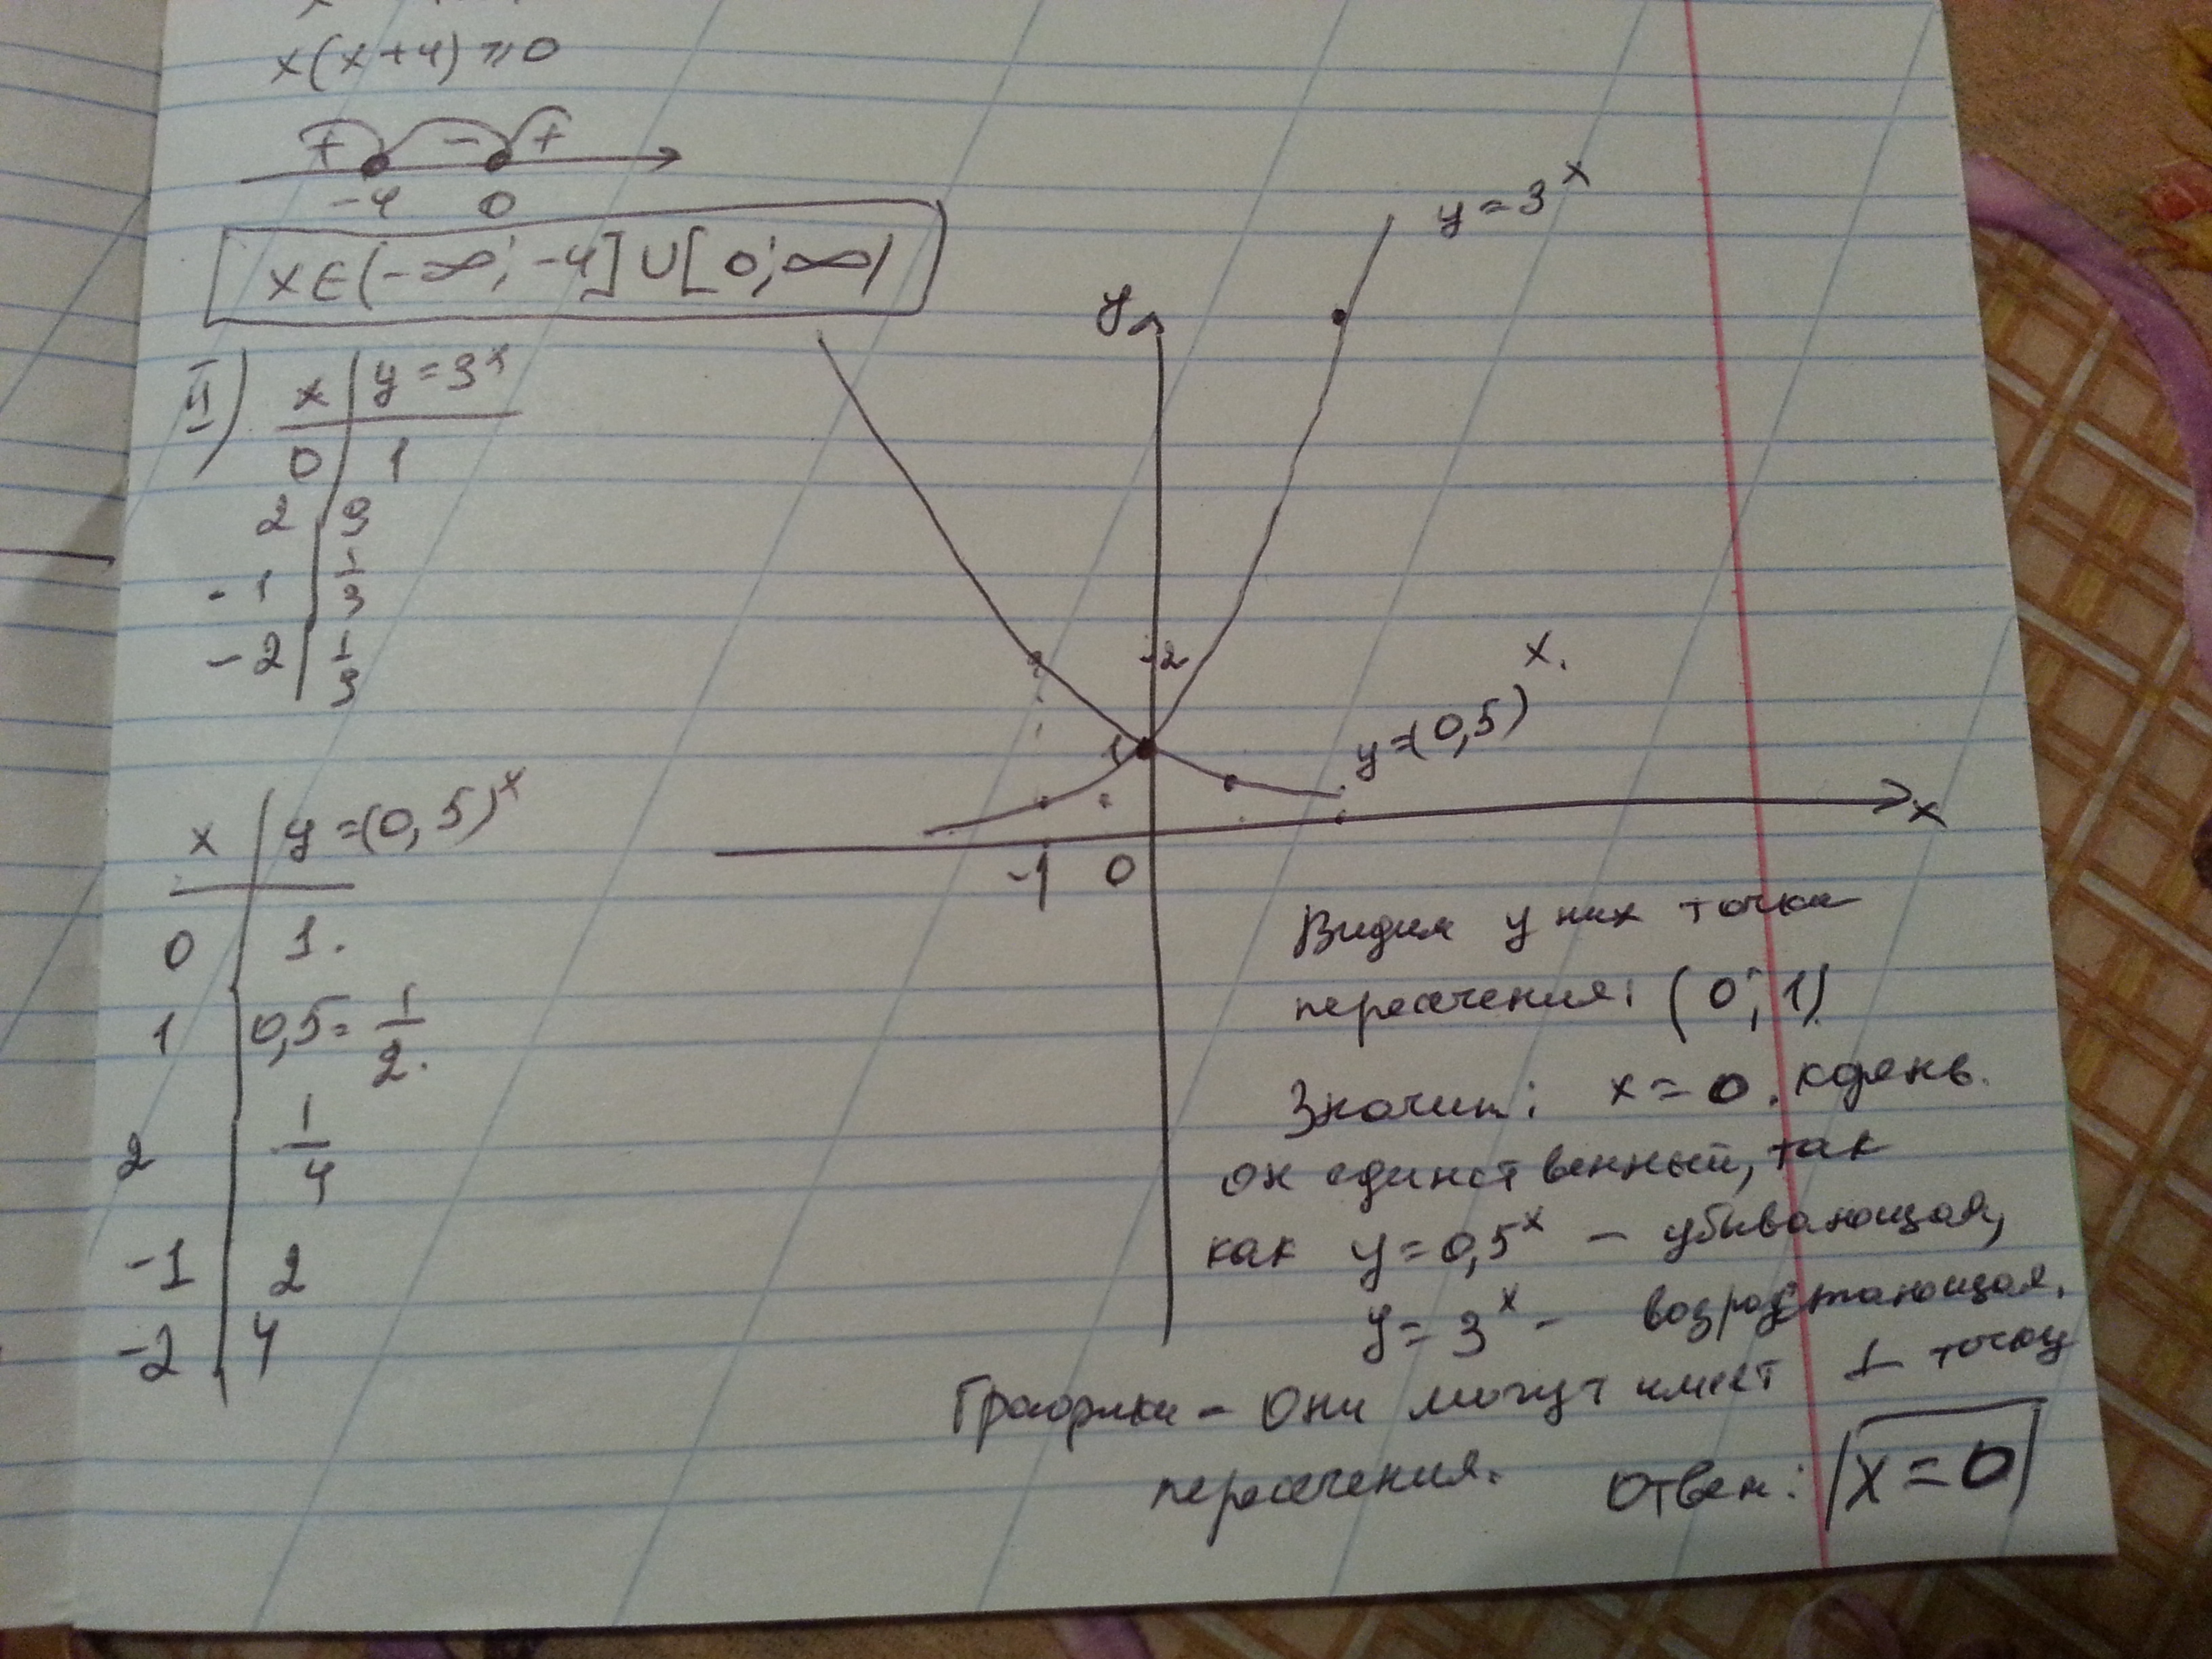 x(x+4)≥0
+ - +
-4 0
x∈(-∞;-4]∪[0;∞)
II)
x | y=3^x
0 | 1
2 | 9
-1 | 1/3
-2 | 1/3
x | y=(0,5)^x
0 | 1.
1 | 0,5=1/2.
2 | 1/4
-1 | 2
-2 | 4
y=3^x
y
2
1
y=(0,5)^x.
x
-1 0
Видим у них точка
пересечения: (0;1)
Значит: x=0. корень.
он единственный, так
как y=0,5^x – убывающая,
y=3^x – возрастающая.
Графики – Они могут имеет 1 точку
пересечения. Ответ: x=0